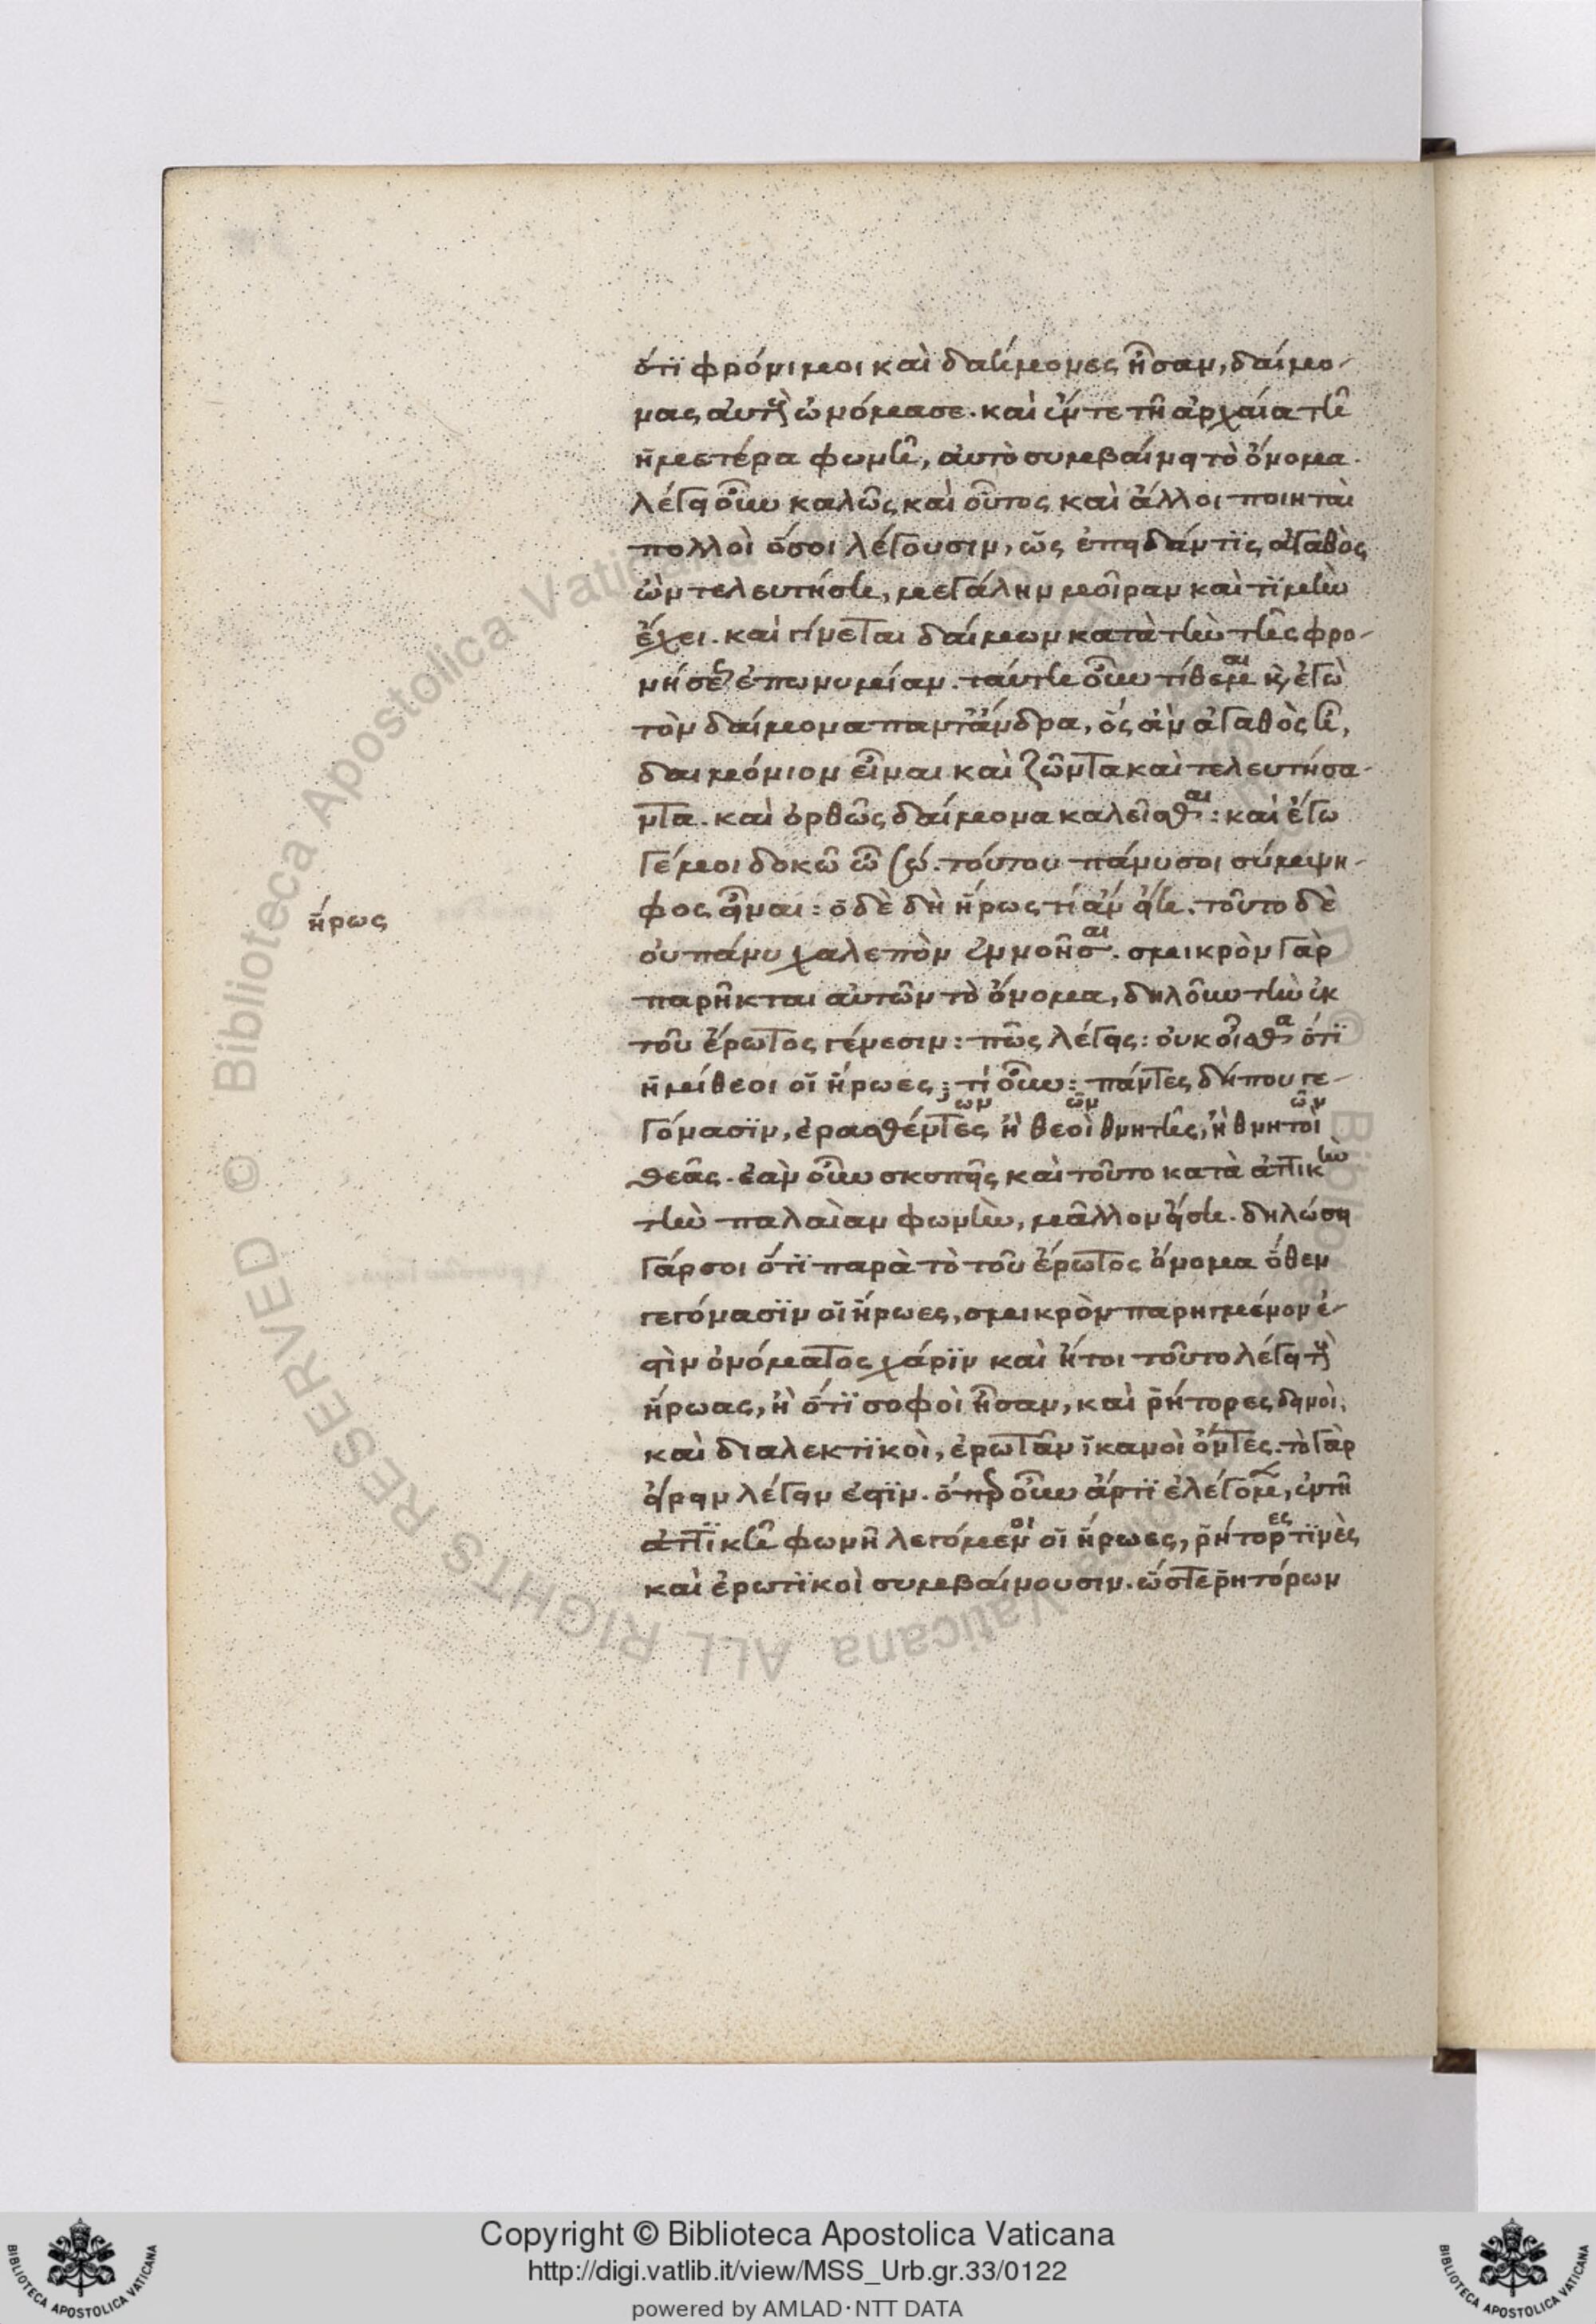 ὅτι φρόνιμοι καὶ δαήμονες ἦσαν, δαίμο-
νας αὐτοὺς ὠνόμασε. καὶ ἔν τε τῆ ἀρχαία τῆ
ἡμετέρα φωνῆ, αὐτὸ συμβαίνει τὸ ὄνομα.
λέγει οὖν καλῶς καὶ οὗτος καὶ ἄλλοι ποιηταὶ
πολλοὶ ὅσοι λέγουσιν, ὡς ἐπειδάν τις ἀγαθὸς
ὢν τελευτήση, μεγάλην μοῖραν καὶ τιμὴν
ἔχει. καὶ γίνεται δαίμων κατὰ τὴν τῆς φρο-
νήσεως ἐπωνυμίαν. ταύτη οὖν τίθεμαι καὶ ἐγὼ
τὸν δαίμονα πάντ' ἄνδρα, ὃς ἂν ἀγαθὸς ἦ,
δαιμόνιον εἶναι καὶ ζῶντα καὶ τελευτήσα-
ντα. καὶ ὀρθῶς δαίμονα καλεῖσθαι: καὶ ἐγώ
γέ μοι δοκῶ ὦ σώ. τούτου πάνυ σοι σύμψη-
φος εἶναι: ὁ δὲ δὴ ἥρως τί ἂν εἴη. τοῦτο δὲ
οὐ πάνυ χαλεπὸν ἐννοῆσαι. σμικρὸν γὰρ
παρῆκται αὐτῶν τὸ ὄνομα, δηλοῦν τὴν ἐκ
τοῦ ἔρωτος γένεσιν: πῶς λέγεις: οὐκ οἶσθα ὅτι
ἡμίθεοι οἱ ἥρωες; τί οὖν: πάντες δήπου γε-
γόνασιν, ἐρασθέντες ἢ θεοὶ θνητῆς, ἢ θνητοὶ
ων ῶν ῶν
θεᾶς. ἐὰν οὖν σκοπῆς καὶ τοῦτο κατὰ ἀττικὴν
τὴν παλαιὰν φωνὴν, μᾶλλον εἴση. δηλώσει
γάρ σοι ὅτι παρὰ τὸ τοῦ ἔρωτος ὄνομα ὅθεν
γεγόνασιν οἱ ἥρωες, σμικρὸν παρηγμένον ἐ-
στὶν ὀνόματος χάριν καὶ ἤτοι τοῦτο λέγει τοὺς
ἥρωας, ἢ ὅτι σοφοὶ ἦσαν, καὶ ῥήτορες δεινοὶ,
καὶ διαλεκτικοὶ, ἐρωτᾶν ἱκανοὶ ὄντες. τὸ γὰρ
εἴρειν λέγειν ἐστίν. ὅπερ οὖν ἄρτι ἐλέγομεν, ἐν τῆ
ἀττικῆ φωνῆ λεγόμενοι οἱ ἥρωες, ῥήτορες τινὲς
καὶ ἐρωτικοὶ συμβαίνουσιν. ὥστε ῥητόρων
ἥρως
Copyright © Biblioteca Apostolica Vaticana
http://digi.vatlib.it/view/MSS_Urb.gr.33/0122
powered by AMLAD·NTT DATA
Biblioteca Apostolica Vaticana ALL RIGHTS RESERVED ©
BIBLIOTECA APOSTOLICA VATICANA
BIBLIOTECA APOSTOLICA VATICANA